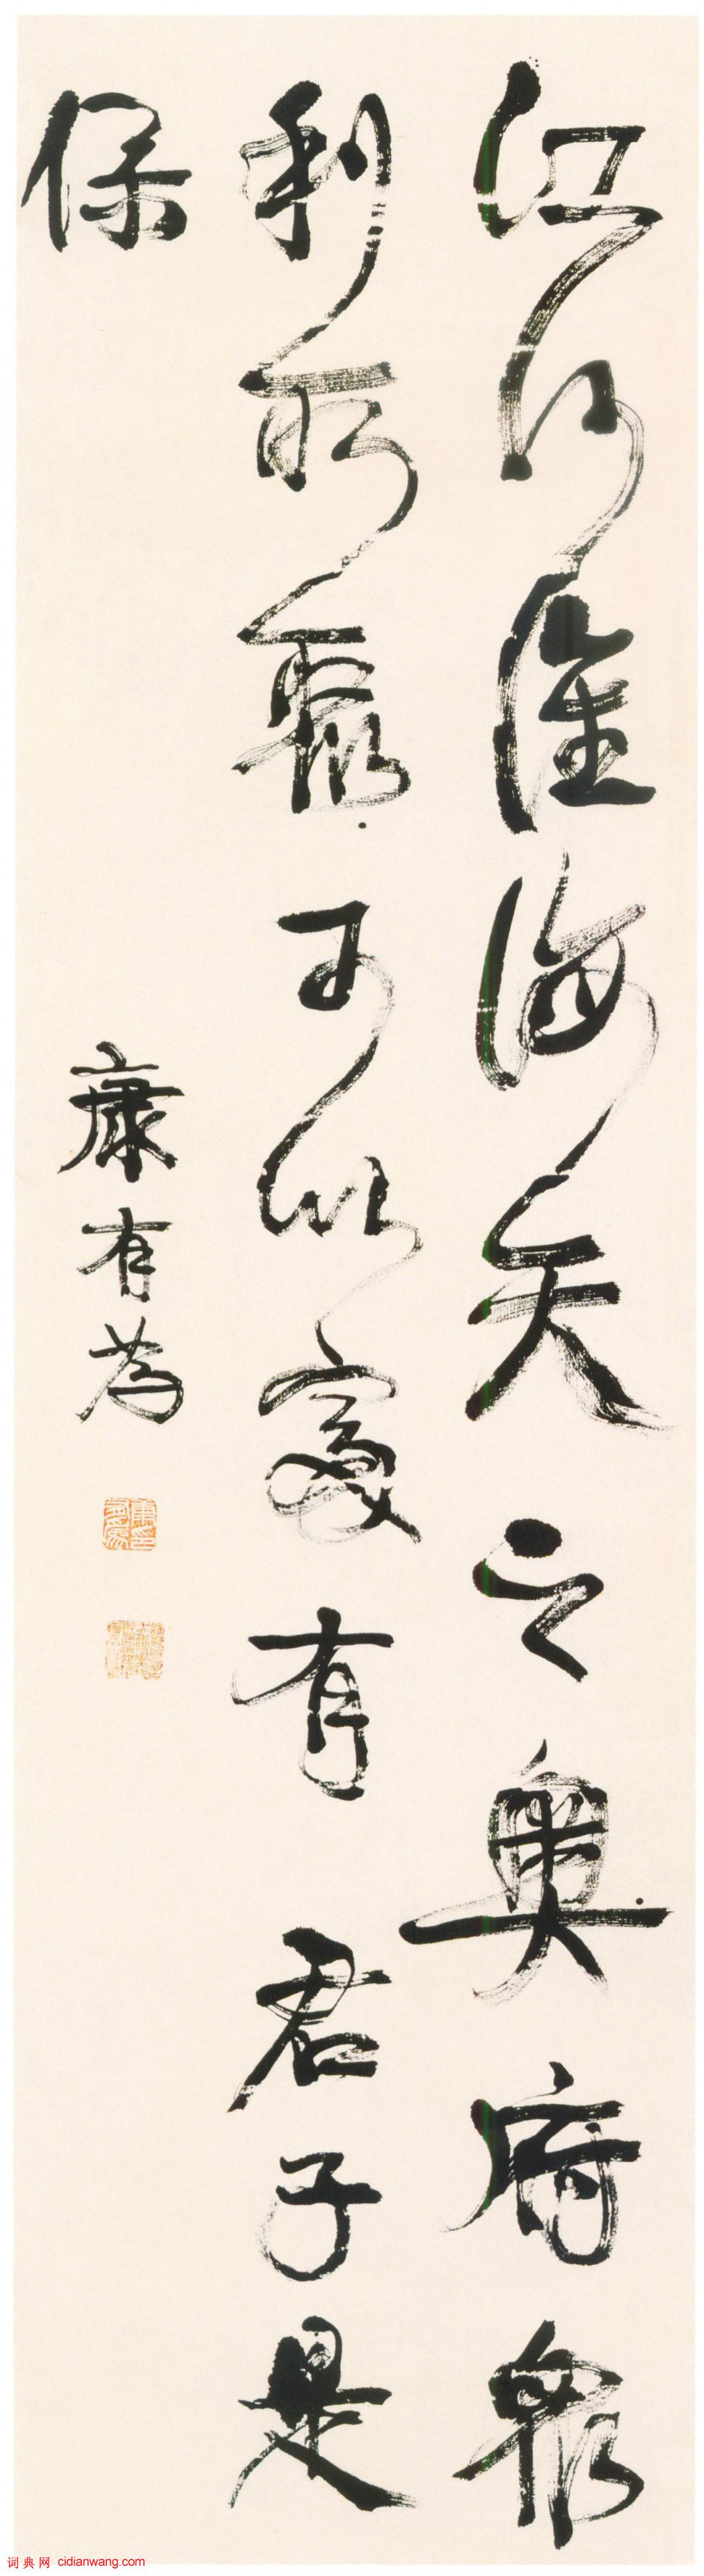 江河淮海天之奧府眾
利所聚可以富有君子是
保
康有為
词典网 cidianwang.com